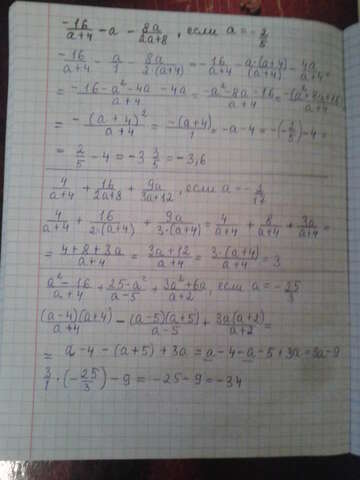 -16/(a+4) - a - 8a/(2a+8), если a = -2/5
-16/(a+4) - a/1 - 8a/(2·(a+4)) = -16/(a+4) - a·(a+4)/(a+4) - 4a/(a+4) =
= (-16-a²-4a-4a)/(a+4) = (-a²-8a-16)/(a+4) = -(a²+8a+16)/(a+4)
= -(a+4)²/(a+4) = -(a+4)/1 = -a-4 = -(-2/5)-4 =
= 2/5 - 4 = -3 3/5 = -3,6
4/(a+4) + 16/(2a+8) + 9a/(3a+12), если a = -
4/(a+4) + 16/(2·(a+4)) + 9a/(3·(a+4)) = 4/(a+4) + 8/(a+4) + 3a/(a+4) =
= (4+8+3a)/(a+4) = (3a+12)/(a+4) = 3·(a+4)/(a+4) = 3
(a²-16)/(a+4) + (25-a²)/(a-5) + (3a²+6a)/(a+2), если a = -25/3
(a-4)(a+4)/(a+4) - (a-5)(a+5)/(a-5) + 3a(a+2)/(a+2) =
= a-4-(a+5)+3a = a-4-a-5+3a = 3a-9
3/1 · (-25/3) - 9 = -25-9 = -34